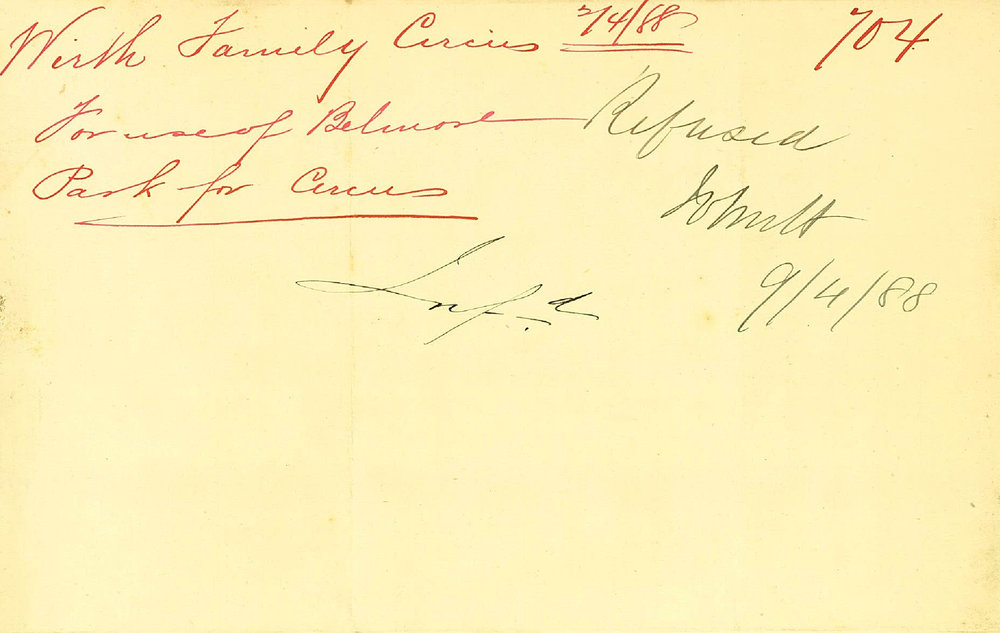 Wirth Family Circus 7/4/88 704
For use of Belmore
Park for Circus
Refused
9/4/88
Inf.d